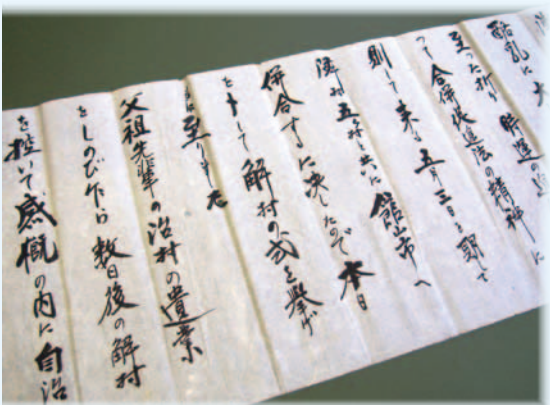 酪乳に大
至った折り 時運の
って合併促進法の精神に
則して来る五月三日を期して
隣村五村と共に館山市へ
併合するに決したので本日
を卜して解村の式を挙げ
至りました
父祖先輩の治村の遺業
をしのび乍ら数日後の解村
を控いて感慨の内に自治